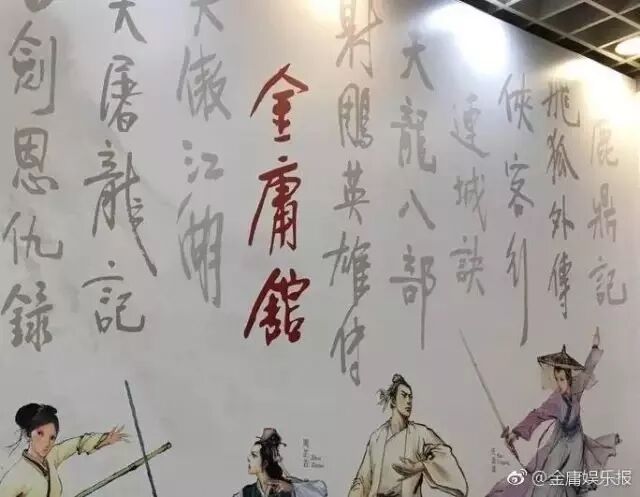 鹿鼎記
飛狐外傳
俠客行
連城訣
天龍八部
射鵰英雄傳
金庸館
笑傲江湖
天屠龍記
劍恩仇錄
@金庸娱乐报